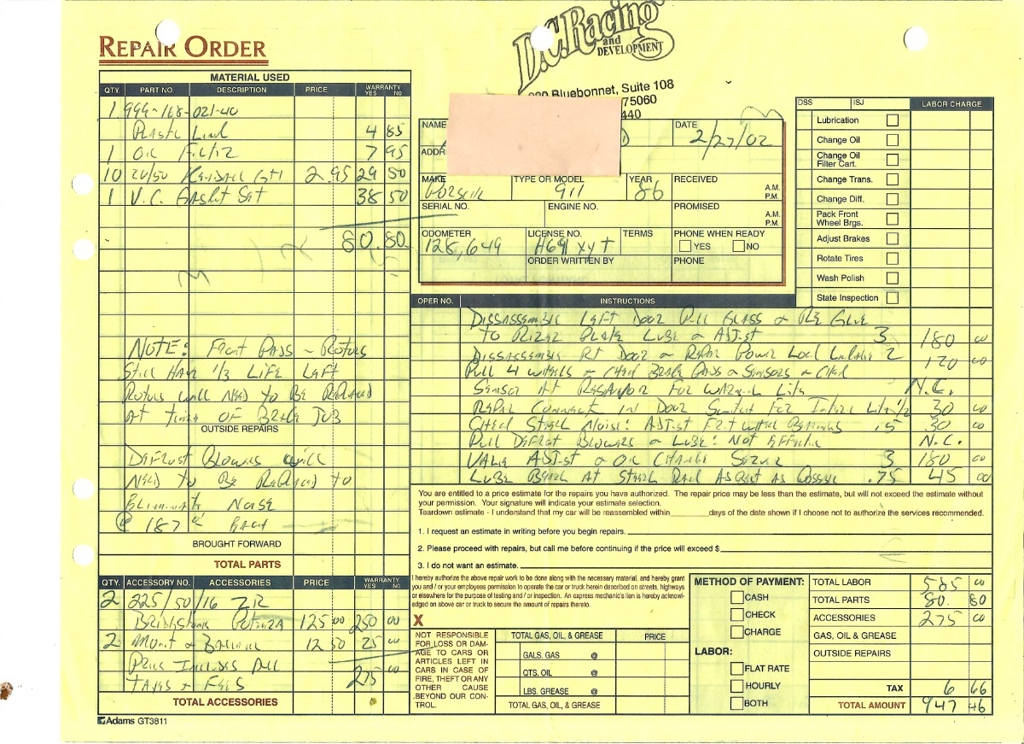 REPAIR ORDER
D.C. Racing
and
DEVELOPMENT
Bluebonnet, Suite 108
75060
440
MATERIAL USED
QTY. PART NO. DESCRIPTION PRICE WARRANTY YES NO
1 999-168-021-40
Plastic 4 85
1 OIL Filter 7 95
10 20/50 Kendall GT1 2.95 29 50
1 V.C. Gasket Set 38 50
80.80
NOTE: Front Pads & Rotors
Still Have 1/3 Life Left
Rotors will need to be Replaced
At time of Brake JOB
OUTSIDE REPAIRS
Defrost Blowers will
Need to Be Replaced to
Eliminate Noise
@ 187 Each
BROUGHT FORWARD
TOTAL PARTS
QTY. ACCESSORY NO. ACCESSORIES PRICE WARRANTY YES NO
2 225/50/16 ZR
Bridgestone Potenza 125 00 250 00
2 Mount & Balance 12 50 25 00
Price Includes All
Taxes & Fees 275 00
TOTAL ACCESSORIES
Adams GT3811
NAME DATE 2/27/02
ADDR
MAKE Porsche TYPE OR MODEL 911 YEAR 86 RECEIVED A.M. P.M.
SERIAL NO. ENGINE NO. PROMISED A.M. P.M.
ODOMETER 128,649 LICENSE NO. H69 XYT TERMS PHONE WHEN READY YES NO
ORDER WRITTEN BY PHONE
DSS ISJ LABOR CHARGE
Lubrication
Change Oil
Change Oil Filter Cart.
Change Trans.
Change Diff.
Pack Front Wheel Brgs.
Adjust Brakes
Rotate Tires
Wash Polish
State Inspection
OPER NO. INSTRUCTIONS
Dissassemble Left Door Pull Glass & Re Glue
to Riser Plate Lube & Adjst 3 180 00
Dissassemble Rt Door & Repair Power Lock Linkage 2 120 00
Pull 4 wheels & Check Brake Pads & Sensors & Check
Sensor At Resavor For Warning Lite N.C.
Repair Connect in Door Switch For Interior Lite 1/2 30 00
Check Noise: Adjst Frt wheel Bearings .5 30 00
Pull Defrost Blowers & Lube: Not Effective N.C.
Valve Adjst & Oil Change Service 3 180 00
Lube At Rack As Best As Possible .75 45 00
You are entitled to a price estimate for the repairs you have authorized. The repair price may be less than the estimate, but will not exceed the estimate without
your permission. Your signature will indicate your estimate selection.
Teardown estimate - I understand that my car will be reassembled within days of the date shown if I choose not to authorize the services recommended.
1. I request an estimate in writing before you begin repairs.
2. Please proceed with repairs, but call me before continuing if the price will exceed $
3. I do not want an estimate.
I hereby authorize the above repair work to be done along with the necessary material, and hereby grant
you and / or your employees permission to operate the car or truck herein described on streets, highways
or elsewhere for the purpose of testing and / or inspection. An express mechanic's lien is hereby acknowl-
edged on above car or truck to secure the amount of repairs thereto.
X
NOT RESPONSIBLE
FOR LOSS OR DAM-
AGE TO CARS OR
ARTICLES LEFT IN
CARS IN CASE OF
FIRE, THEFT OR ANY
OTHER CAUSE
BEYOND OUR CON-
TROL.
TOTAL GAS, OIL, & GREASE PRICE
GALS. GAS @
QTS. OIL @
LBS. GREASE @
TOTAL GAS, OIL, & GREASE
METHOD OF PAYMENT:
CASH
CHECK
CHARGE
LABOR:
FLAT RATE
HOURLY
BOTH
TOTAL LABOR 585 00
TOTAL PARTS 80. 80
ACCESSORIES 275 00
GAS, OIL & GREASE
OUTSIDE REPAIRS
TAX 6 66
TOTAL AMOUNT 947 46